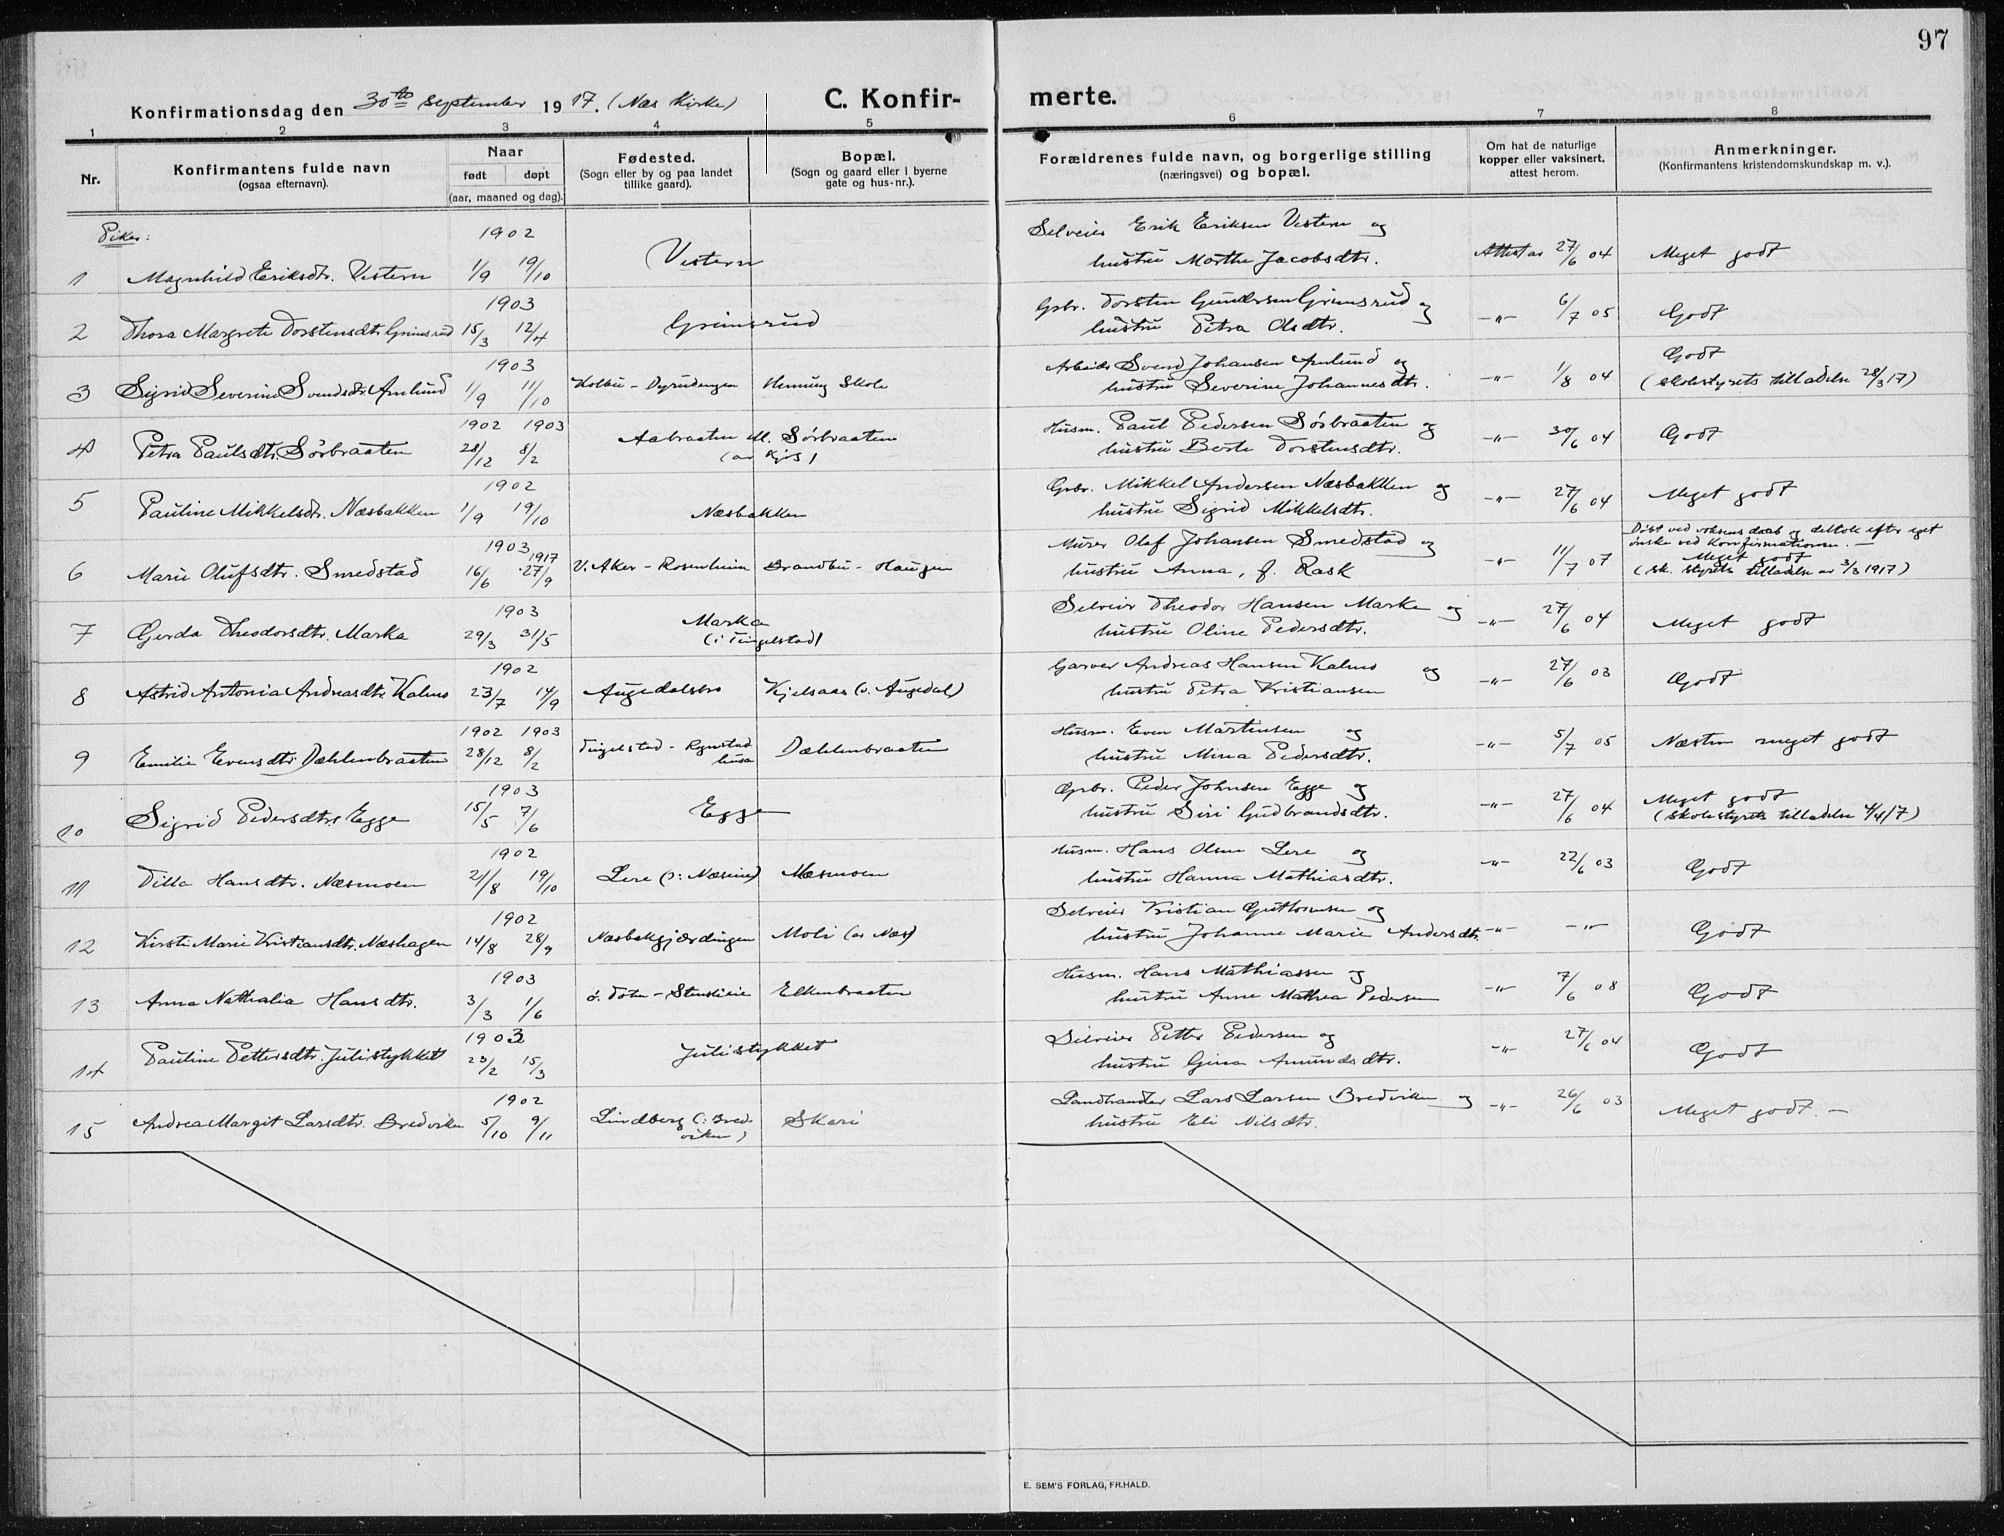 97
Konfirmationsdag den 30te September 1917. (Næs Kirke) C. Konfir- merte.
1 2 3 4 5 6 7 8
Nr. Konfirmantens fulde navn (ogsaa efternavn). Naar født døpt (aar, maaned og dag). Fødested. (Sogn eller by og paa landet tillike gaard). Bopæl. (Sogn og gaard eller i byerne gate og hus-nr.). Forældrenes fulde navn, og borgerlige stilling (næringsvei) og bopæl. Om hat de naturlige kopper eller vaksinert, attest herom. Anmerkninger. (Konfirmantens kristendomskundskap m. v.).
Piker:
1902 Selveier Erik Eriksen Vestern og
1 Magnhild Eriksdtr. Vestern 1/9 19/10 Vestern hustru Marthe Jacobsdtr. Attest av 27/6 04 Meget godt
1903 Gpbr. Torsten Gundersen Grimsrud og
2 Thora Margrete Torstensdtr. Grimsrud 15/3 12/4 Grimsrud hustru Petra Olsdtr. -"- 6/7 05 Godt
1903 Arbeider Svend Johansen Amlund og Godt
3 Sigrid Severine Svendsdtr. Amlund 1/9 11/10 Kolbu - Dyrudengen Henung Skole hustru Severine Johannesdtr. -"- 1/8 04 (Skolestyrets tilladelse 28/3 17)
1902 1903 Husm. Paul Pedersen Sørbraaten og
4 Petra Paulsdtr. Sørbraaten 28/12 8/2 Aabraaten M. Sørbraaten -"- 30/6 04 Godt
(av Kjos) hustru Berte Torstensdtr.
1902 Gpbr. Mikkel Andersen Næsbakken og
5 Pauline Mikkelsdtr. Næsbakken 1/9 19/10 Næsbakken hustru Sigrid Mikkelsdtr. -"- 27/6 04 Meget godt
Døbt ved voksens daab og deltok efter eget
1903 1917 Murer Olaf Johansen Smedstad og ønske ved Konfirmationen. -
6 Marie Olufsdtr. Smedstad 16/6 27/9 V. Aker - Rosenheim Brandbu - Haugen hustru Anna, f. Rask -"- 11/7 07 Meget godt
(sk. styrets tilladelse av 3/3 1917)
1903 Selveier Theodor Hansen Marka og
7 Gerda Theodorsdtr. Marka 29/3 31/5 Marka (i Tingelstad) hustru Oline Pedersdtr. -"- 27/6 04 Meget godt
1902 Garver Andreas Hansen Kalmo og
8 Astrid Antonia Andreasdtr. Kalmo 23/7 14/9 Augedalsbro Kjelsaas (v. Augedal) hustru Petra Kristiansen -"- 27/6 03 Godt
1902 1903 Husm. Even Martinsen og
9 Emilie Evensdtr. Dæhlenbraaten 28/12 8/2 Tingelstad - Rynstad husa Dæhlenbraaten hustru Mina Pedersdtr. -"- 5/7 05 Næsten meget godt
1903 Gpbr. Peder Johnsen Egge og Meget godt
10 Sigrid Pedersdtr. Egge 15/5 7/6 Egge hustru Siri Gudbrandsdtr. -"- 27/6 04 (skolestyrets tilladelse 4/4 17)
1902 Husm. Hans Olsen Lere og
11 Tilla Hansdtr. Næsmoen 21/8 19/10 Lere (v: Næseie) Næsmoen hustru Hanna Mathiasdtr. -"- 22/6 03 Godt
1902 Selveier Kristian Guttormsen og
12 Kirsti Marie Kristiansdtr. Næshagen 14/8 28/9 Næsbakgjærdingen Moli (av Næs) hustru Johanne Marie Andersdtr. -"- -"- Godt
1903 Husm. Hans Mathiassen og
13 Anna Nathalia Hansdtr. 3/3 1/6 ø. Toten - Stenseie Elkenbraaten hustru Anne Mathea Pedersen -"- 7/6 08 Godt
1903 Selveier Petter Pedersen og
14 Pauline Pettersdtr. Julistykket 23/2 15/3 Julistykket hustru Gina Amundsdtr. -"- 27/6 04 Godt
1902 Landhandler Lars Larsen Bredviken og
15 Andrea Margit Larsdtr. Bredviken 5/10 9/11 Lindberg (: Bredviken) Skari hustru Eli Nilsdtr. -"- 26/6 03 Meget godt. -
E. SEM'S FORLAG, FR.HALD.